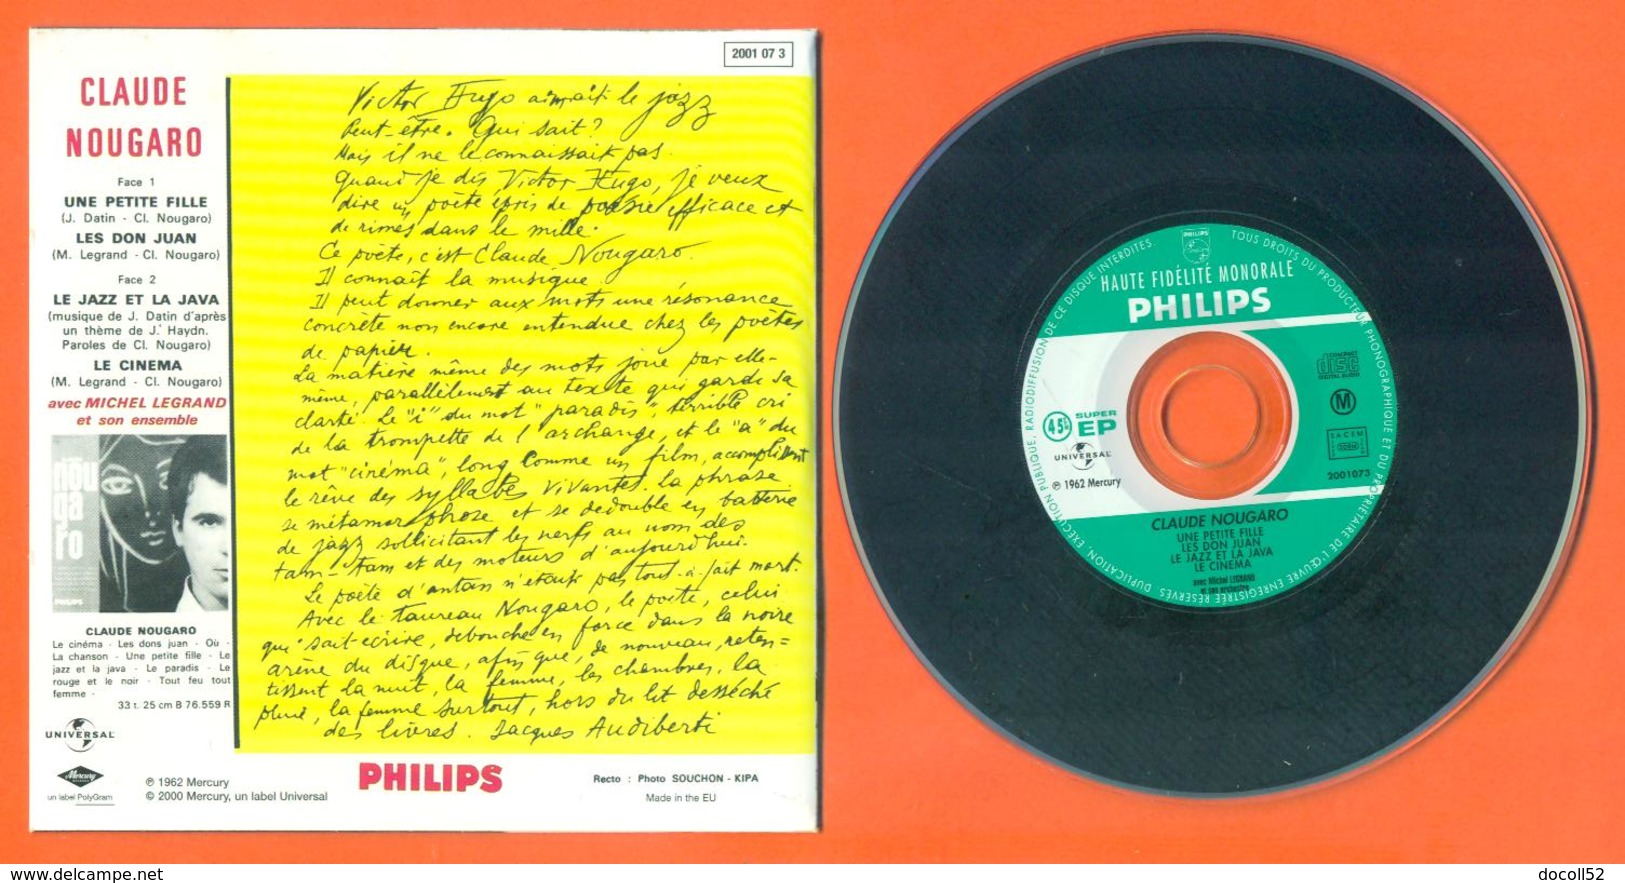 2001 07 3
CLAUDE
NOUGARO
Face 1
UNE PETITE FILLE
(J. Datin - Cl. Nougaro)
LES DON JUAN
(M. Legrand - Cl. Nougaro)
Face 2
LE JAZZ ET LA JAVA
(musique de J. Datin d'après
un thème de J. Haydn.
Paroles de Cl. Nougaro)
LE CINEMA
(M. Legrand - Cl. Nougaro)
avec MICHEL LEGRAND
et son ensemble
nou
ga
ro
PHILIPS
CLAUDE NOUGARO
Le cinéma - Les dons juan - Où -
La chanson - Une petite fille - Le
jazz et la java - Le paradis - Le
rouge et le noir - Tout feu tout
femme -
33 t. 25 cm B 76.559 R
UNIVERSAL
Mercury
un label PolyGram
℗ 1962 Mercury
© 2000 Mercury, un label Universal
PHILIPS
Recto : Photo SOUCHON - KIPA
Made in the EU
Victor Hugo aimait le jazz
Peut-être. Qui sait?
Mais il ne le connaissait pas.
Quand je dis Victor Hugo, je veux
dire un poète épris de poésie efficace et
de rimes dans le mille.
Ce poète, c'est Claude Nougaro.
Il connaît la musique.
Il peut donner aux mots une résonance
concrète non encore entendue chez les poètes
de papier.
La matière même des mots joue par elle-
même, parallèlement au texte qui garde sa
clarté. Le "i" du mot "paradis", terrible cri
de la trompette de l'archange, et le "a" du
mot "cinéma", long comme un film, accomplissent
le rêve des syllabes vivantes. La phrase
se métamorphose et se dédouble en batterie
de jazz sollicitant les nerfs au nom des
tam-tam et des moteurs d'aujourd'hui.
Le poète d'antan n'était pas tout-à-fait mort.
Avec le taureau Nougaro, le poète, celui
qui sait écrire, débouche en force dans la noire
arène du disque, afin que, de nouveau, reten=
tissent la nuit, la femme, les chambres, la
pluie, la femme surtout, hors du lit desséché
des livres. Jacques Audiberti
PHILIPS
HAUTE FIDÉLITÉ MONORALE
PHILIPS
TOUS DROITS DU PRODUCTEUR PHONOGRAPHIQUE ET DU PROPRIÉTAIRE DE L'ŒUVRE ENREGISTRÉE RÉSERVÉS. DUPLICATION, EXÉCUTION PUBLIQUE, RADIODIFFUSION DE CE DISQUE INTERDITES
COMPACT
disc
DIGITAL AUDIO
M
45t
SUPER
EP
UNIVERSAL
SACEM
2001073
℗ 1962 Mercury
CLAUDE NOUGARO
UNE PETITE FILLE
LES DON JUAN
LE JAZZ ET LA JAVA
LE CINEMA
avec Michel LEGRAND
et son ensemble
www.delcampe.net
docoll52